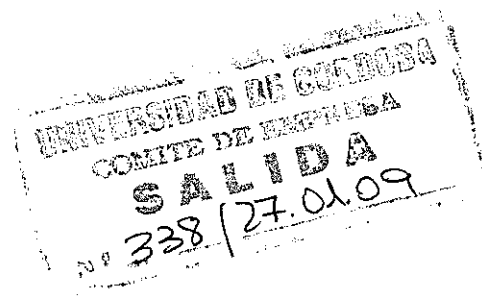 UNIVERSIDAD DE CORDOBA
COMITE DE EMPRESA
SALIDA
Nº 338 / 27.01.09